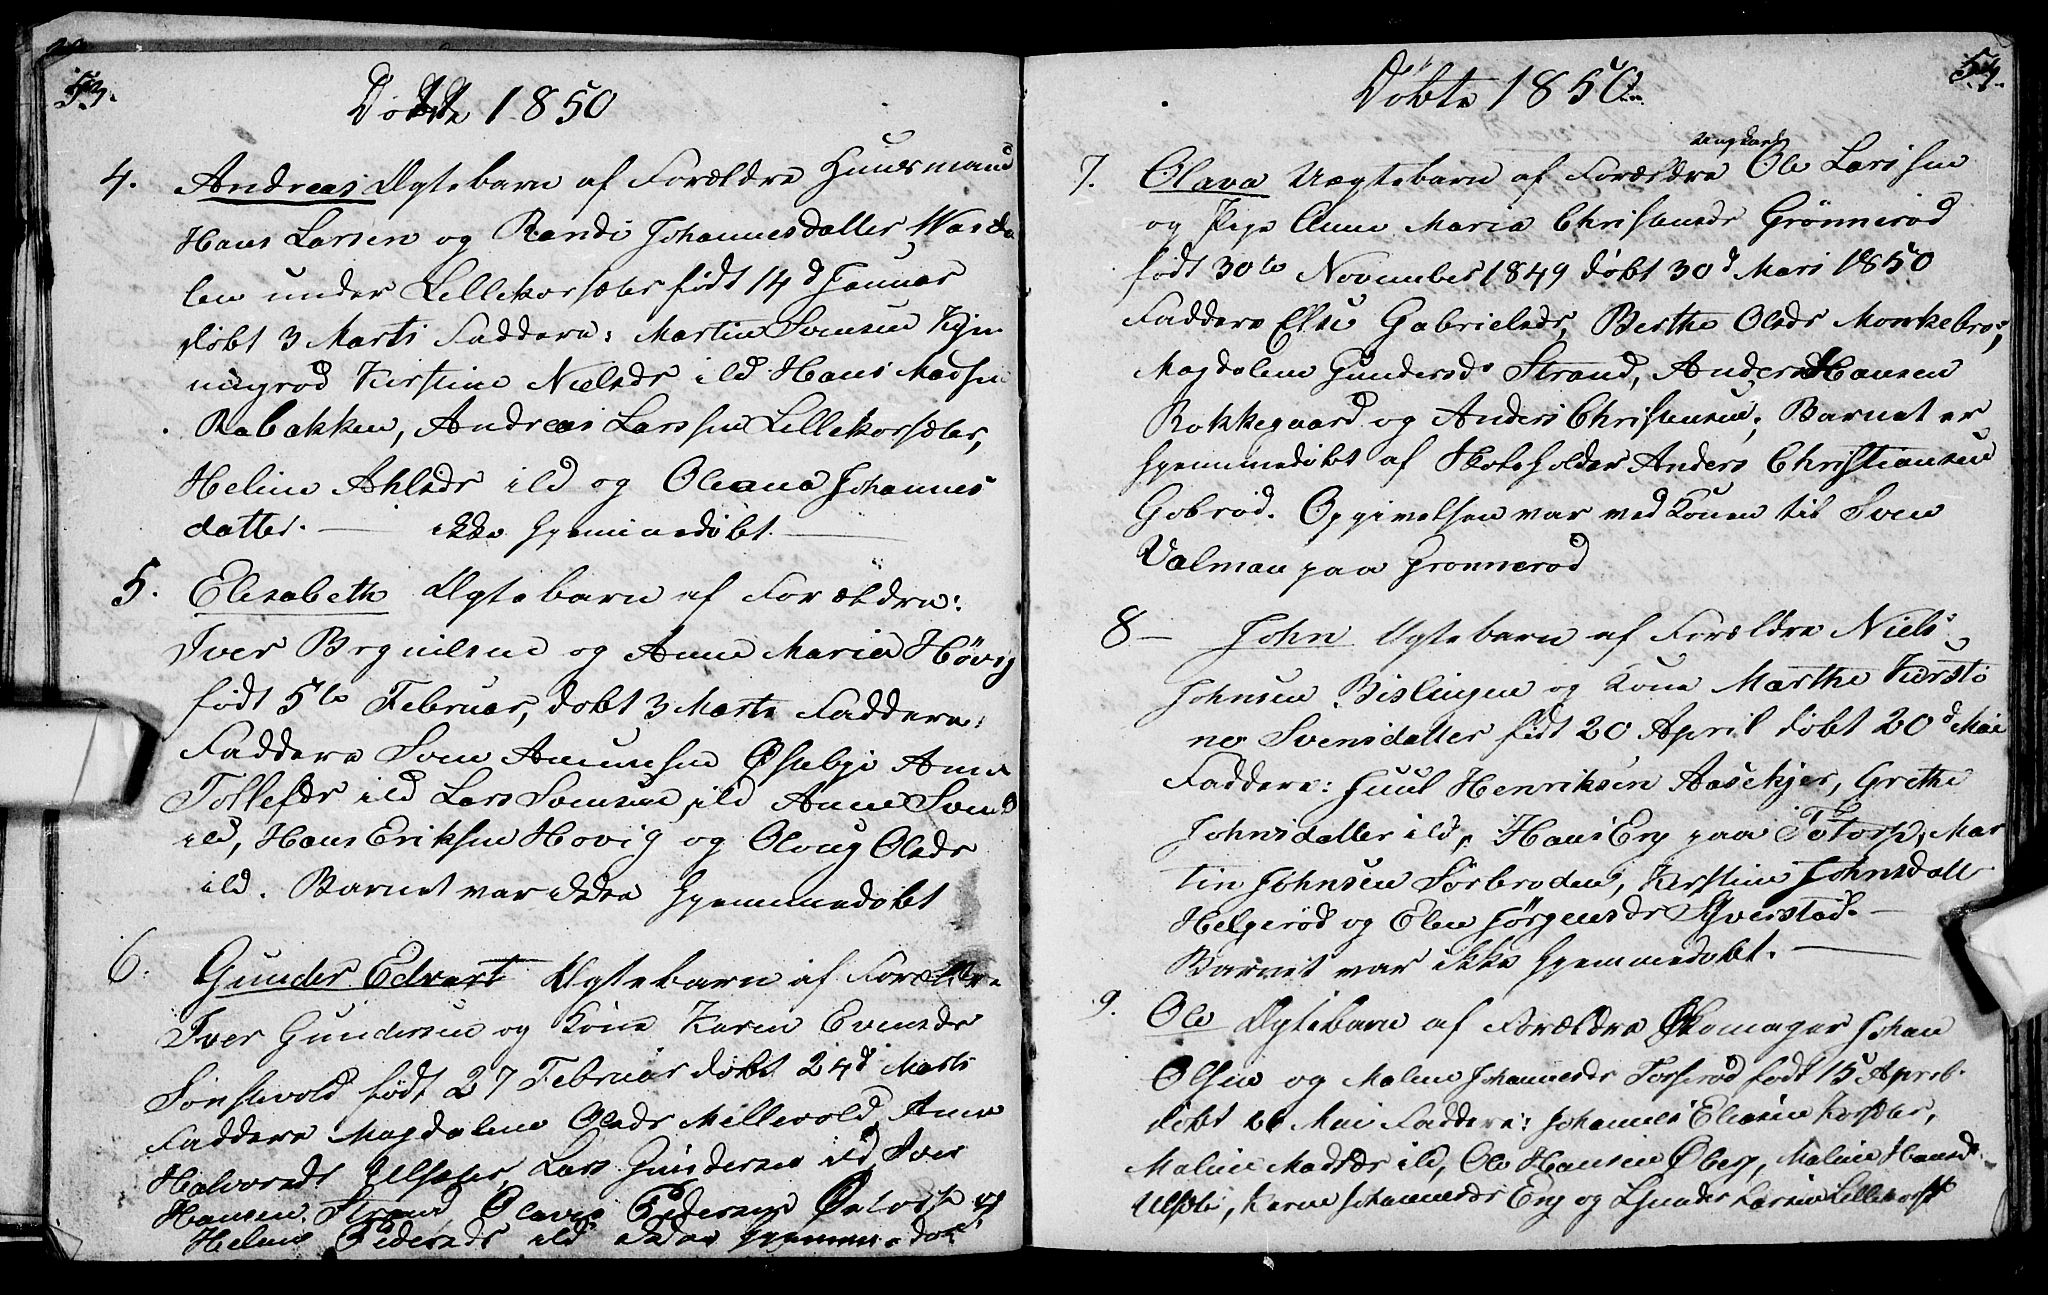 53.
Døbte 1850
4. Andreas Ægtebarn af Forældre Huusmand
Hans Larsen og Randi Johannesdatter Wasda
len under Lillekorsæter født 14d Januar
døbt 3 Marts Faddere: Martin Svensen
Kirstine Nielsdr ild Hans Madsen
Rabakken, Andreas Larssen Lillekorsæter,
Heline Ahlsdr ild og Oleana Johannes
datter. — ikke hjemmedøbt. —
5. Elisabeth Ægtebarn af Forældre:
Iver Brynilsen og Anne Maria Høvig
født 5te Februar, døbt 3 Marts Faddere:
Faddere Sven Amunsen Østebye Anne
Tollefsdr ild Lars Svensen ild Anne Svensd
ild, Hans Eriksen Hovig og Oloug Olsdr
ild. Barnet var ikke hjemmedøbt
6. Gunder Edvart Ægtebarn af Forældre
Iver Gundersen og Kone Karen Evensdr
Sonstevold født 27 Februar døbt 24d Marts
Faddere Magdalene Olsdr Millevold, Anne
Halvorsdt Ulsæter, Lars Gundersen ild Iver
Hansen Strand Olaves Pedersen Østorp og
Heline Pedersdr ild ikke hjemmedøbt
54.
Døbte 1850
Ungkarl
7. Olava Uægtebarn af Forældre Ole Larssen
og Pige Anne Maria Christensdr Grönnerød
født 30te November 1849 døbt 30d Mars 1850
Faddere Else Gabrielsdr, Berthe Olsdr Monkebro,
Magdalene Gundersdr Strand, Anders Hansen
Rokkegaard og Anders Christensen; Barnet er
hjemmedøbt af Skoleholder Anders Christiansen
Gobrød. Opgivelsen var ved Konen til Sven
Valman paa Gronnerød
8 — John Ægtebarn af Forældre Niels
Johnsen Bislingen og Kone Marthe Kirsti
ne Svensdatter født 20 April døbt 20d Mai
Faddere: Juul Henriksen Aasekjer, Grethe
Johnsdatter ild, Hans Eng paa Totorp, Mar
tin Johnsen Sörbroden, Kirstine Johnsdatt
Helgerød og Elen Jørgensdr Hverstad. —
Barnet var ikke hjemmedøbt. —
9. Ole Ægtebarn af Forældre Skomager Johan
Olsen og Malene Johannesdr Torserød født 15 April
døbt 26 Mai Faddere: Johannes Eliasen Korsæter,
Maline Madsdr ild, Ole Hansen Öberg, Maline Hansdt
Ulsæter, Karen Johannesdr Eng og Gunder Larsen Lillekorsæt